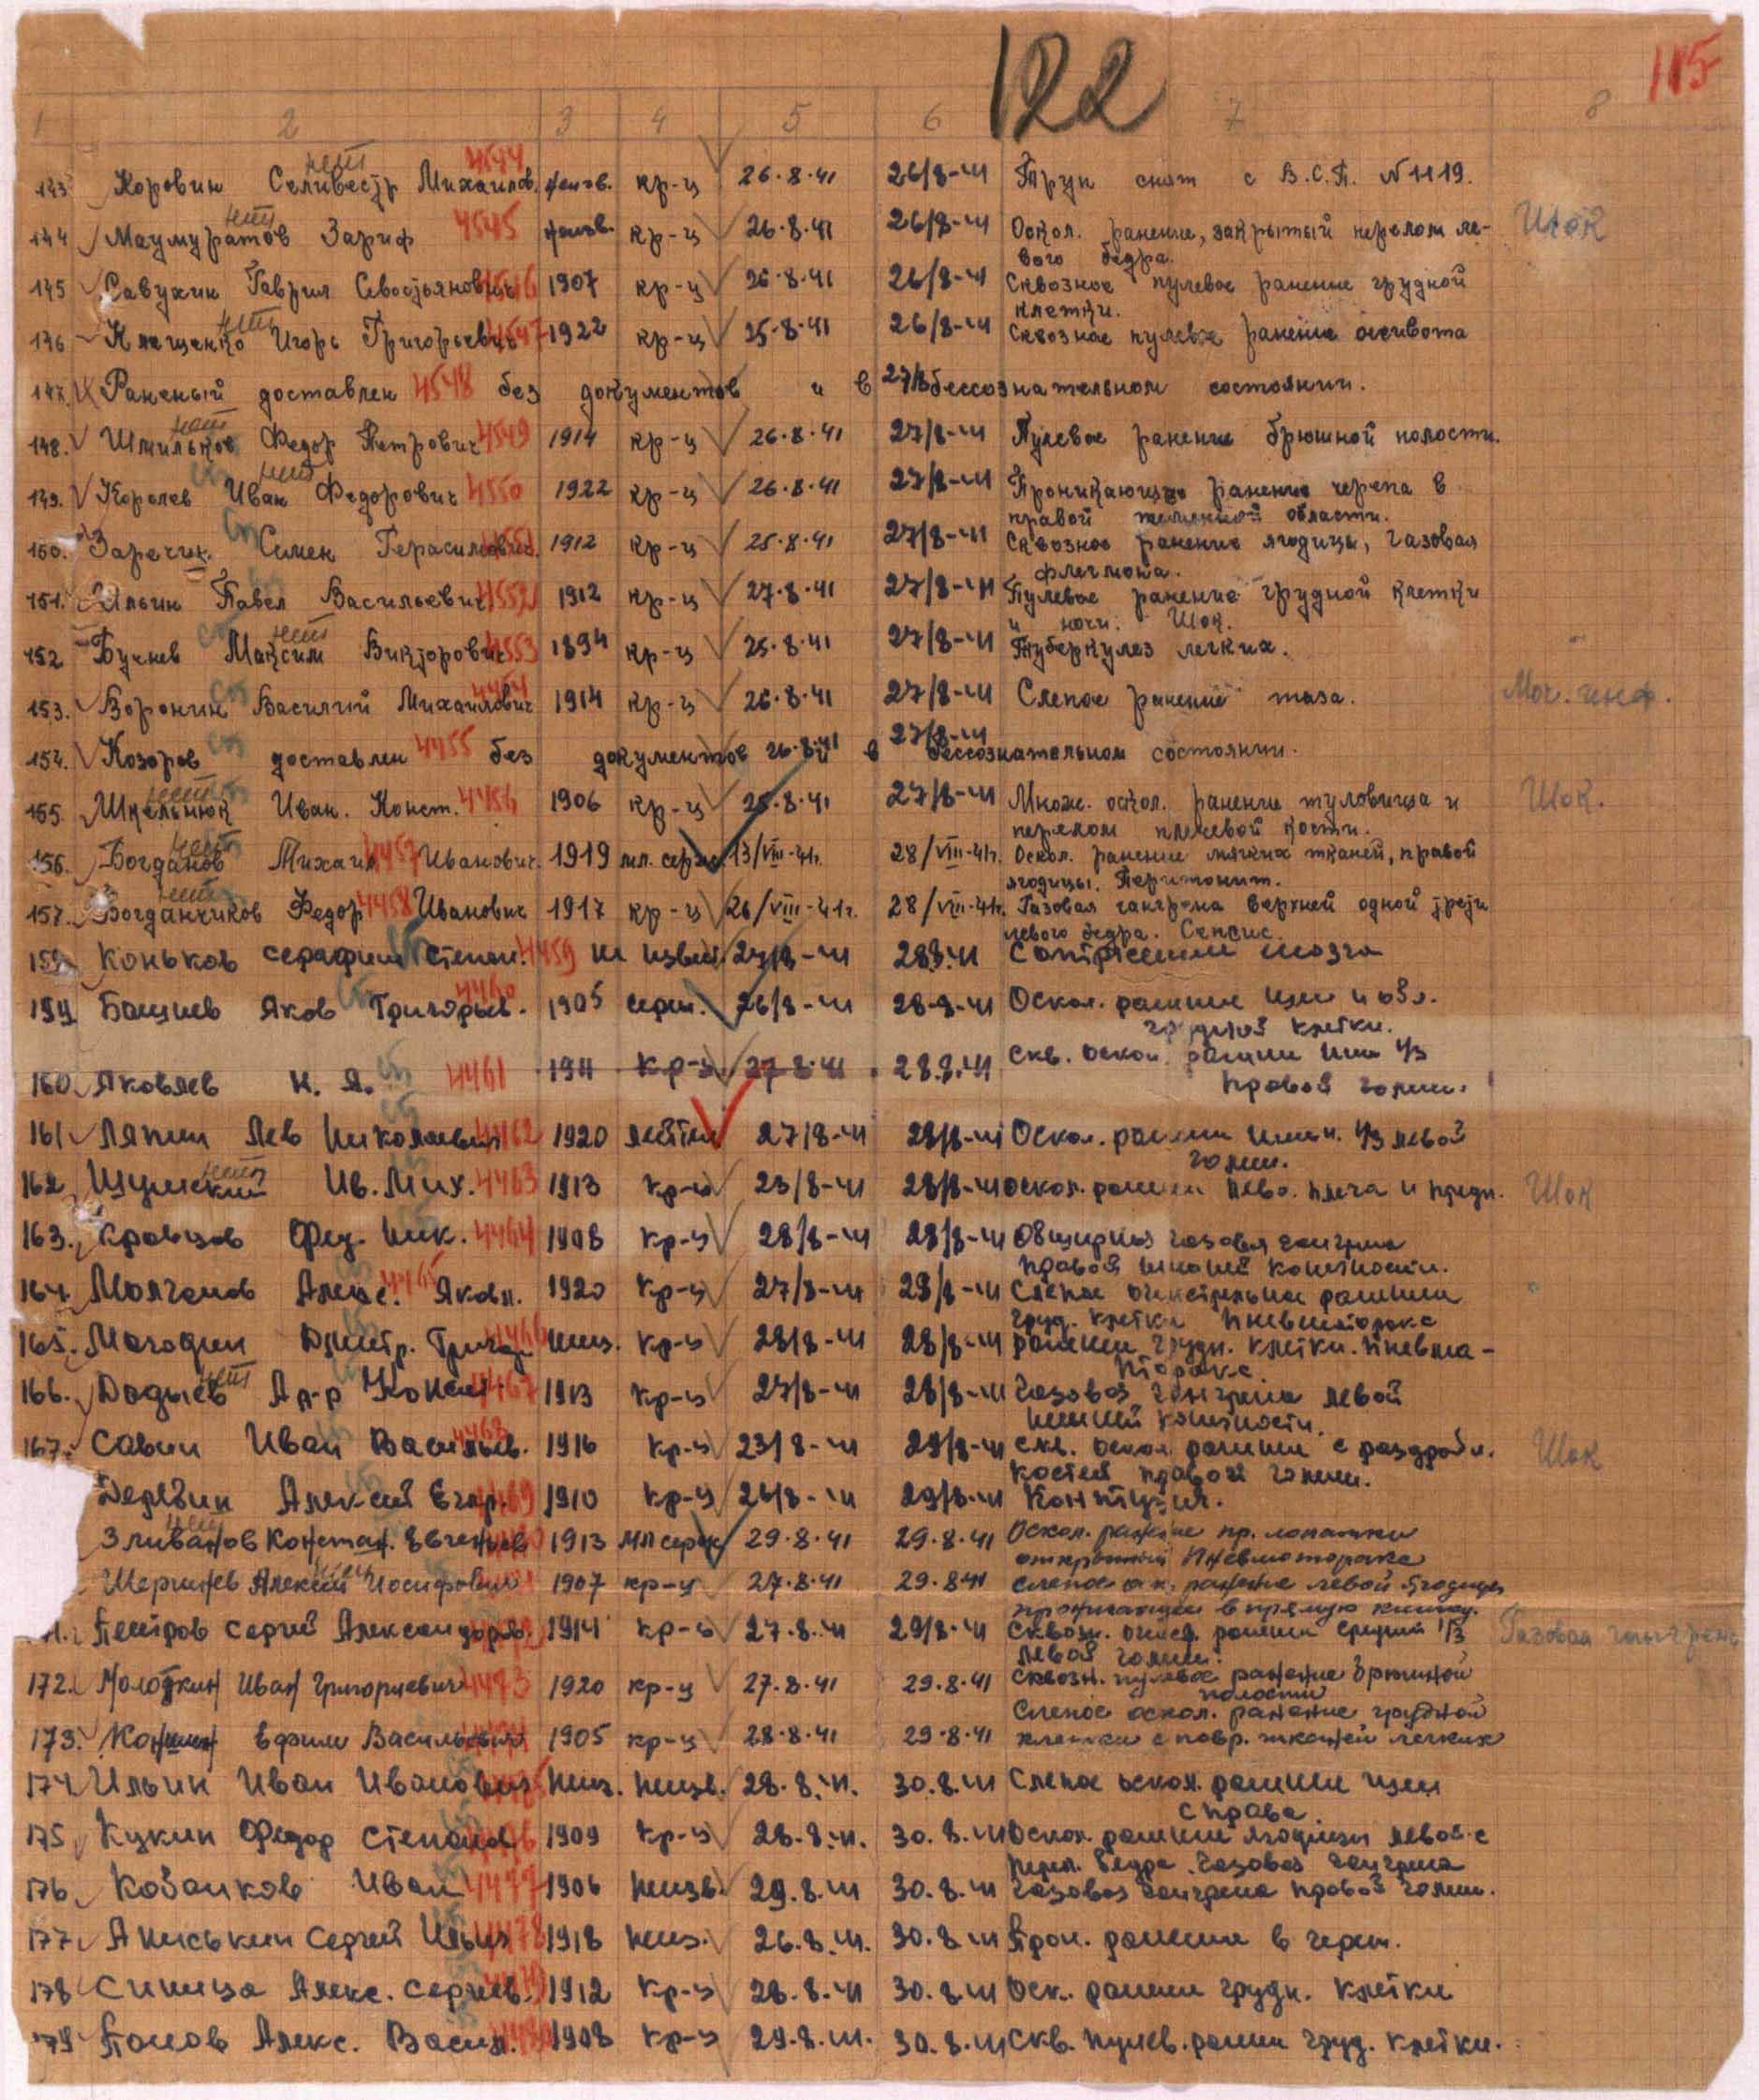 122
115
1 2 3 4 5 6 7 8
143 Коровин Селивестр Михайлов. неизв. кр-ц 26.8.41 26/8-41 Труп снят с В.С.П. №1119.
нет 4544
144 Маумуратов Зариф 4545 неизв. кр-ц 26.8.41 26/8-41 Оскол. ранение, закрытый перелом ле- Шок
нет
вого бедра.
145 Савухин Гаврил Севостьянович 1907 кр-ц 26.8.41 26/8-41 Сквозное пулевое ранение грудной
клетки.
146 Клещенко Игорь Григорьевич 4547 1922 кр-ц 25.8.41 26/8-41 Сквозное пулевое ранение живота
нет
147. Раненый доставлен 4548 без документов и в 27/8 бессознательном состоянии.
148. Шмильков Федор Петрович 4549 1914 кр-ц 26.8.41 27/8-41 Пулевое ранение брюшной полости.
нет
149. Королев Иван Федорович 4550 1922 кр-ц 26.8.41 27/8-41 Проникающее ранение черепа в
нет
правой теменной области.
150. Заречин Симен Герасимович 1912 кр-ц 25.8.41 27/8-41 Сквозное ранение ягодицы, газовая
флегмона.
151. Ильин Павел Васильевич 4552 1912 кр-ц 27.8.41 27/8-41 Пулевое ранение грудной клетки
и ночи. Шок.
152 Бучнев Максим Викторович 4553 1894 кр-ц 25.8.41 27/8-41 Туберкулез легких.
нет
153. Воронин Василий Михайлович 1914 кр-ц 26.8.41 27/8-41 Слепое ранение таза. Моч. инф.
154. Козоров доставлен 4455 без документов 26.8.41 и в 27/8-41 бессознательном состоянии.
155. Шкельнюк Иван. Конст. 4456 1906 кр-ц 25.8.41 27/8-41 Множ. оскол. ранение туловища и Шок.
нет
перелом плечевой кости.
156. Богданов Михаил 4457 Иванович. 1919 мл. серж. 13/VIII-41г. 28/VIII-41г. Оскол. ранение мягких тканей, правой
нет
ягодицы. Перитонит.
157. Богданчиков Федор 4458 Иванович 1917 кр-ц 26/VIII-41г. 28/VIII-41г. Газовая гангрена верхней одной трети
нет
левого бедра. Сепсис.
Коньков Серафим Степан. 4459 не извест 27/8-41 28.8.41 Сотрясение мозга
159 Бащиев Яков Григорьев. 4460 1905 серж. 26/8-41 28-8-41 Оскол. ранение шеи и обл.
грудной клетки.
160. Яковлев Н. Я. 4461 1911 кр-ц 27.8.41 28.8.41 Скв. оскол. ранение ниж 1/3
правой голени.
161. Ляпин Лев Николаевич 4462 1920 лейтен 27/8-41 28/8-41 Оскол. ранение нижн. 1/3 левой
голени.
162 Шумский Ив. Мих. 4463 1913 кр-ц 23/8-41 28/8-41 Оскол. ранение лево. плеча и предп. Шок
нет
163. Кравцов Фед. Ник. 4464 1908 кр-ц 28/8-41 28/8-41 Обширная газовая гангрена
правой нижней конечности.
164. Молчанов Алекс. 4465 Яковл. 1920 кр-ц 27/8-41 28/8-41 Слепое огнестрельное ранение
груд. клетки пневмоторакс
165. Магадин Дмитр. Григор. 4466 неиз. кр-ц 28/8-41 28/8-41 ранение грудн. клетки. Пневма-
торакс.
166. Дадыев Ал-р Конст. 4467 1913 кр-ц 27/8-41 28/8-41 Газовая гангрена левой
нет
нижней конечности.
167. Савин Иван Васильев. 4468 1916 кр-ц 23/8-41 29/8-41 Скв. оскол. ранение с раздробл. Шок
костей правой голени.
Деревин Алексей Егор. 1910 кр-ц 26/8-41 29/8-41 Контузия.
Зливанов Констан. Евгеньев 1913 мл серж 29.8.41 29.8.41 Оскол. ранение пр. лопатки
нет
открытый пневмоторакс
Шерстнев Алексей Иосифович 1907 кр-ц 27.8.41 29.8.41 Слепое ок. ранение левой ягодицы
проникающее в прямую кишку.
1. Петров Сергей Александров. 1914 кр-ц 27.8.41 29/8-41 Сквозн. огнест. ранение средней 1/3 Газовая гангрена
левой голени.
172. Молоткин Иван Григорьевич 4473 1920 кр-ц 27.8.41 29.8.41 Сквозн. пулевое ранение брюшной
полости
Слепое оскол. ранение грудной
173. Коншин Ефим Васильевич 1905 кр-ц 28.8.41 29.8.41 клетки с повр. тканей легких
174 Ильин Иван Иванович неиз. неизв. 28.8.41. 30.8.41 Слепое оскол. ранение шеи
справа.
175. Кукин Федор Степанов 1909 кр-ц 28.8.41. 30.8.41 Оскол. ранение ягодицы левой с
перел. бедра. Газовая гангрена
176. Кабанков Иван 4477 1906 неизв. 29.8.41 30.8.41 Газовая гангрена правой голени.
177. Аниськин Сергей Ильич 4478 1918 неиз. 26.8.41. 30.8.41 Прон. ранение в череп.
178 Синица Алекс. Сергеев. 1912 кр-ц 28.8.41 30.8.41 Оск. ранение грудн. клетки
179 Попов Алекс. Васил. 1908 кр-ц 29.8.41. 30.8.41 Скв. пулев. ранен груд. клетки.